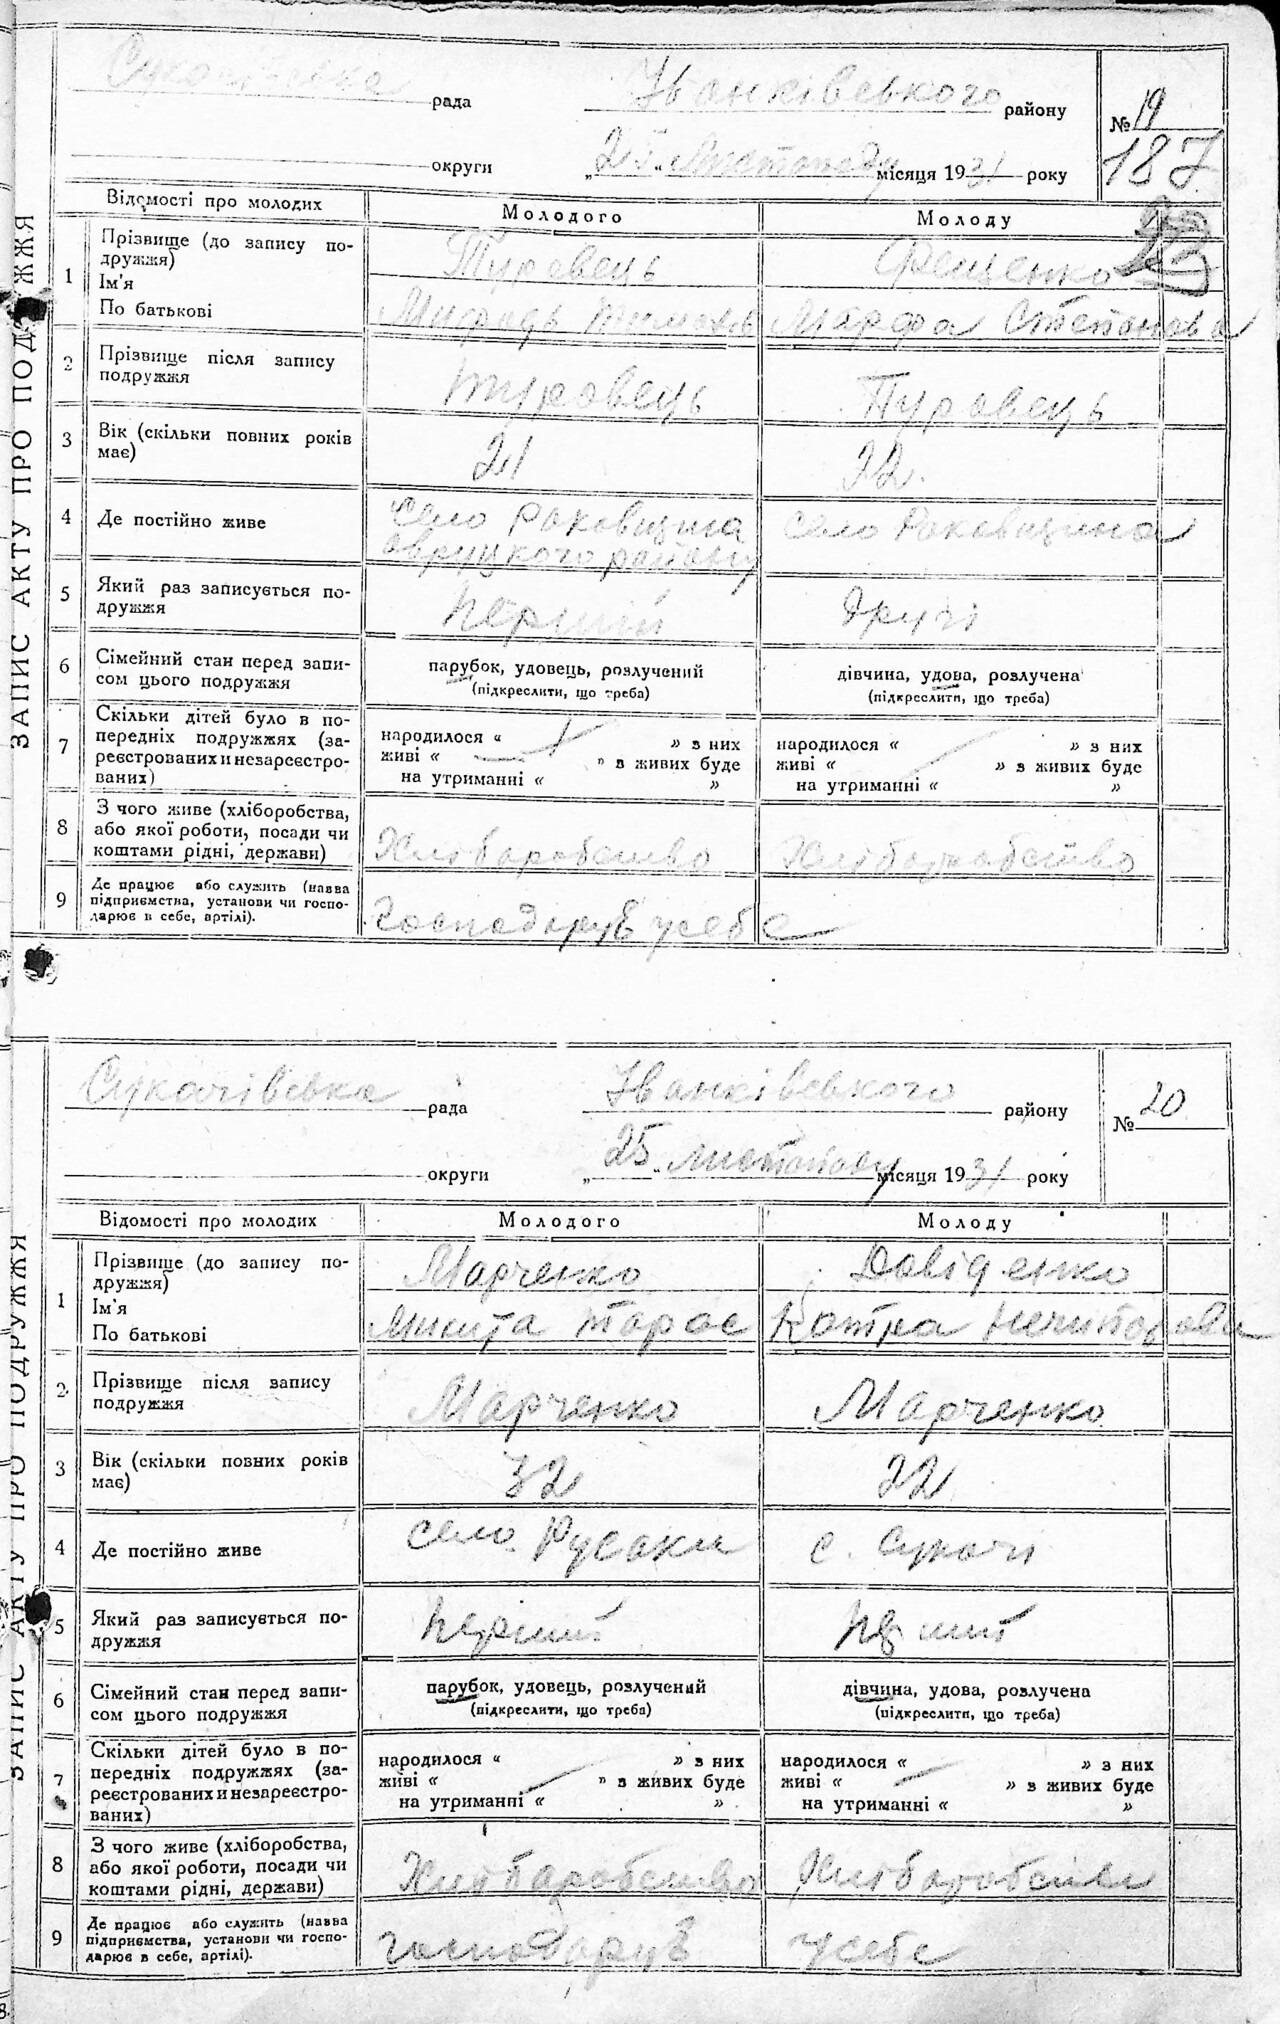 ЗАПИС АКТУ ПРО ПОДРУЖЖЯ
рада Іванківевького району № 19
округи „25" листопаду місяця 1931 року 187
Відомості про молодих Молодого Молоду
1 Прізвище (до запису по-
дружжя) Туровець Фещенко
Ім'я
По батькові Марфа Степанова
2 Прізвище після запису
подружжя Туровець Туровець
3 Вік (скільки повних років
має) 21 22
4 Де постійно живе село Раковщина село Раковщина
овруцкого району
5 Який раз записується по-
дружжя Перший Другі
6 Сімейний стан перед запи-
сом цього подружжя
парубок, удовець, розлучений дівчина, удова, розлучена
(підкреслити, що треба) (підкреслити, що треба)
7 Скільки дітей було в по-
передніх подружжях (за-
реєстрованих и незареєстро-
ваних)
народилося « » з них народилося « » з них
живі « » в живих буде живі « » в живих буде
на утриманні « » на утриманні « »
8 З чого живе (хліборобства,
або якої роботи, посади чи
коштами рідні, держави)
Хлібаробство Хлібаробство
9 Де працює або служить (назва
підприємства, установи чи госпо-
дарює в себе, артілі).
Господарув усебе
ЗАПИС АКТУ ПРО ПОДРУЖЖЯ
Сукачівська рада Іванківевького району № 20
округи „25" листопаду місяця 1931 року
Відомості про молодих Молодого Молоду
1 Прізвище (до запису по-
дружжя) Марченко Давіденко
Ім'я
По батькові Микита Тарас Катра Нечипорова
2 Прізвище після запису
подружжя Марченко Марченко
3 Вік (скільки повних років
має) 32 22
4 Де постійно живе село Русаки с. Сукачі
5 Який раз записується по-
дружжя перший
6 Сімейний стан перед запи-
сом цього подружжя
парубок, удовець, розлучений дівчина, удова, розлучена
(підкреслити, що треба) (підкреслити, що треба)
7 Скільки дітей було в по-
передніх подружжях (за-
реєстрованих и незареєстро-
ваних)
народилося « » з них народилося « » з них
живі « » в живих буде живі « » в живих буде
на утриманні « » на утриманні « »
8 З чого живе (хліборобства,
або якої роботи, посади чи
коштами рідні, держави)
Хлібаробство Хлібаробство
9 Де працює або служить (назва
підприємства, установи чи госпо-
дарює в себе, артілі).
Господарув усебе